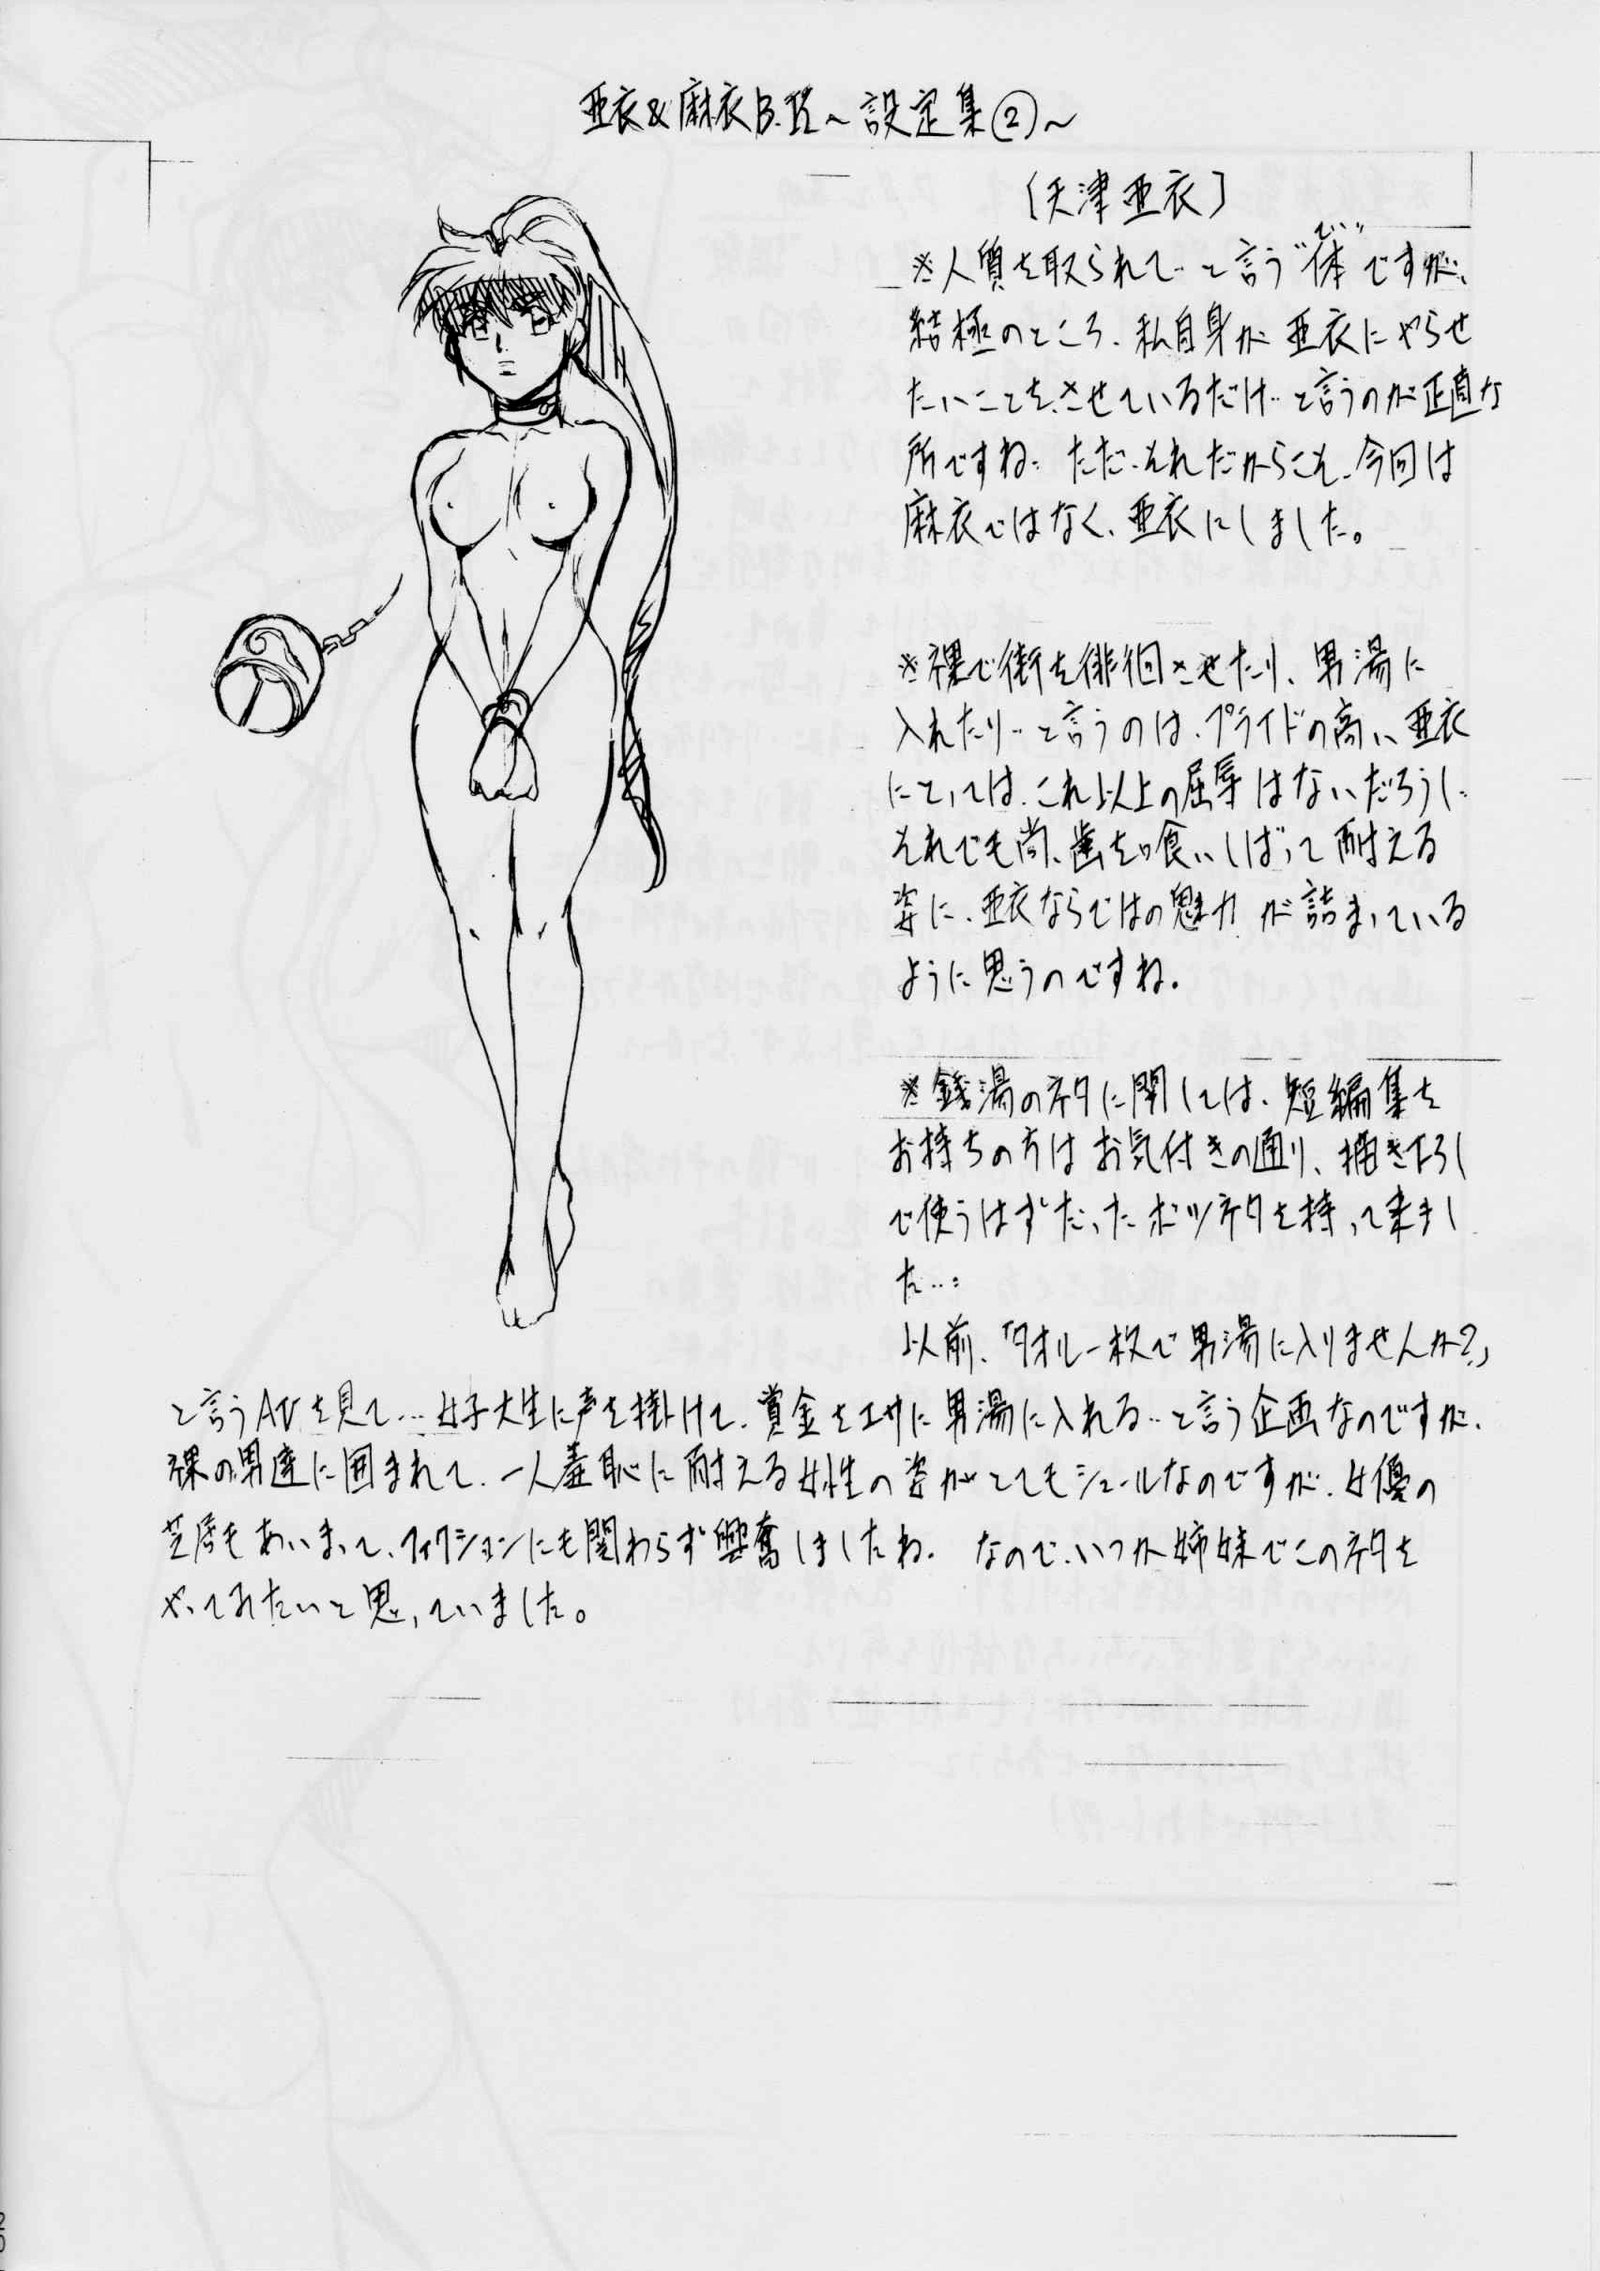 亜衣&麻衣B.R～設定集②～
〔天津亜衣〕
てい
※人質を取られて‥と言う“体”ですが、
結極のところ、私自身が亜衣にやらせ
たいことを、させているだけ‥と言うのが正直な
所ですね… ただ、それだからこそ、今回は
麻衣ではなく、亜衣にしました。
※裸で街を徘徊させたり、男湯に
入れたり‥と言うのは、プライドの高い亜衣
にとっては、これ以上の屈辱はないだろうし、
それでも尚、歯を喰いしばって耐える
姿に、亜衣ならではの魅力が詰まっている
ように思うのですね。
※銭湯のネタに関しては、短編集を
お持ちの方はお気付きの通り、描き下ろし
で使うはずだったボツネタを持って来まし
た…。
以前、「タオル一枚で男湯に入りませんか?」
と言うAVを見て…女子大生に声を掛けて、賞金をエサに男湯に入れる‥と言う企画なのですが、
裸の男達に囲まれて、一人羞恥に耐える女性の姿がとてもシュールなのですが、女優の
芝居もあいまって、フィクションにも関わらず興奮しましたね。 なので、いつか姉妹でこのネタを
やってみたいと思っていました。